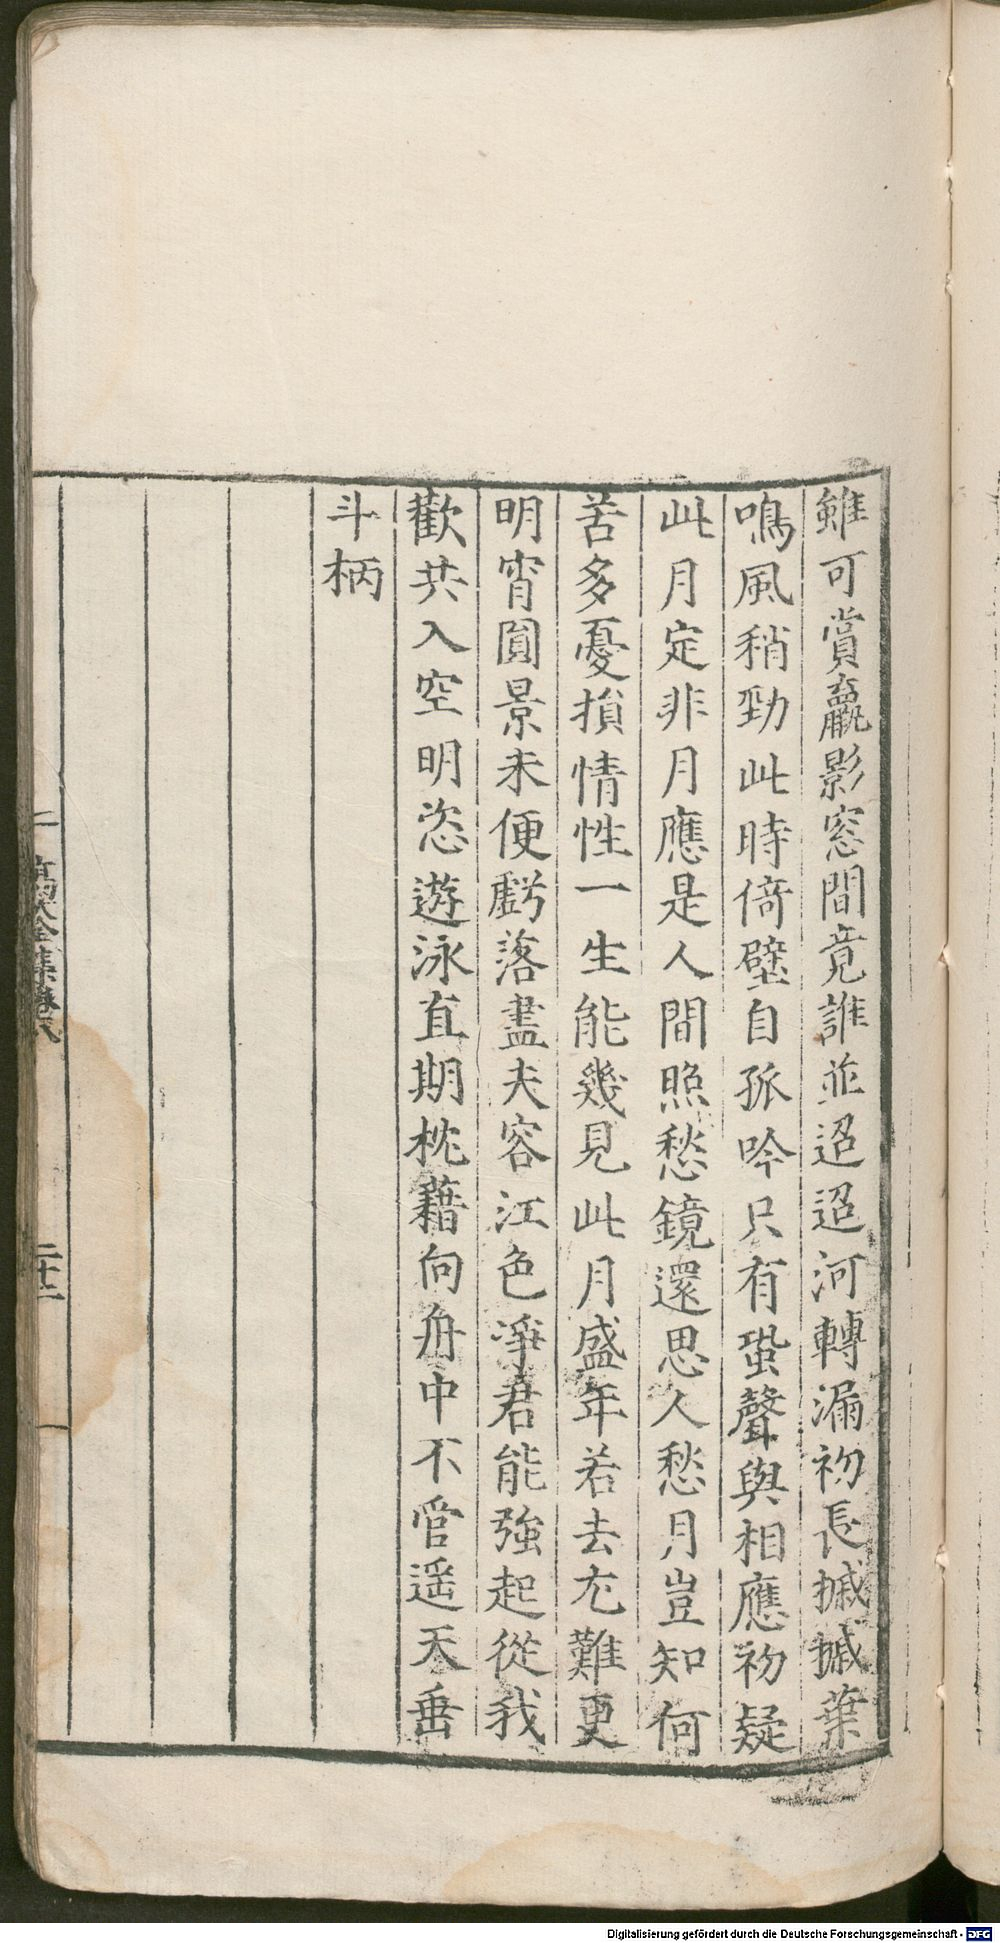 雖可賞羸影窓間竟誰並迢迢河轉漏初長摵摵葉
鳴風稍勁此時倚壁自孤吟只有蛩聲與相應初疑
此月定非月應是人間照愁鏡還思人愁月豈知何
苦多憂損情性一生能幾見此月盛年若去尤難更
明宵圓景未便虧落盡夫容江色凈君能強起從我
歡共入空明恣遊泳直期枕藉向舟中不管遥天垂
斗柄
二十二
Digitalisierung gefördert durch die Deutsche Forschungsgemeinschaft - DFG